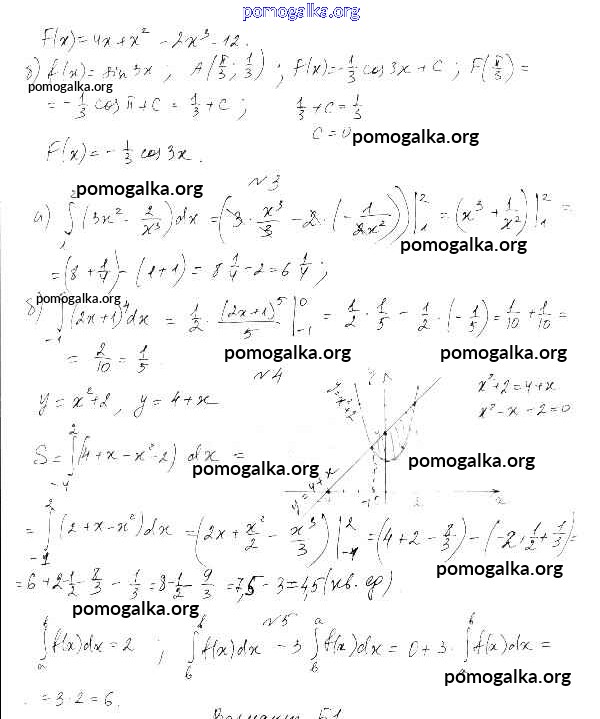 pomogalka.org
F(x)=4x+x²-2x³-12.
б) f(x)=sin3x; A(π/3; 1/3); F(x)=-1/3 cos3x+C; F(π/3)=
pomogalka.org
=-1/3 cosπ+C=1/3+C; 1/3+C=1/3
C=0
pomogalka.org
F(x)=-1/3 cos3x.
pomogalka.org
№3
а) ∫₁² (3x²-2/x³)dx=(3·x³/3-2·(-1/2x²))|₁²=(x³+1/x²)|₁²=
pomogalka.org
=(8+1/4)-(1+1)=8 1/4-2=6 1/4;
pomogalka.org
б) ∫₋₁⁰ (2x+1)⁴dx=1/2·(2x+1)⁵/5|₋₁⁰=1/2·1/5-1/2·(-1/5)=1/10+1/10=
=2/10=1/5. pomogalka.org pomogalka.org
№4
y=x²+2, y=4+x
x²+2=4+x
x²-x-2=0
S=∫₋₁² (4+x-x²-2)dx=
pomogalka.org pomogalka.org
y=4+x
x
=∫₋₁² (2+x-x²)dx=(2x+x²/2-x³/3)|₋₁²=(4+2-8/3)-(-2+1/2+1/3)=
pomogalka.org
=6+2-1/2-8/3-1/3=8-1/2-9/3=7,5-3=4,5(кв.ед).
pomogalka.org
№5
∫ₐᵇ f(x)dx=2; ∫ᵇᵇ f(x)dx-3∫ f(x)dx=0+3·∫ f(x)dx=
pomogalka.org pomogalka.org
=3·2=6.
Вариант 51